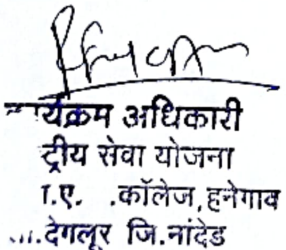 र्यक्रम अधिकारी
ट्रीय सेवा योजना
ए. .कॉलेज,हनेगाव
देगलूर जि.नांदेड